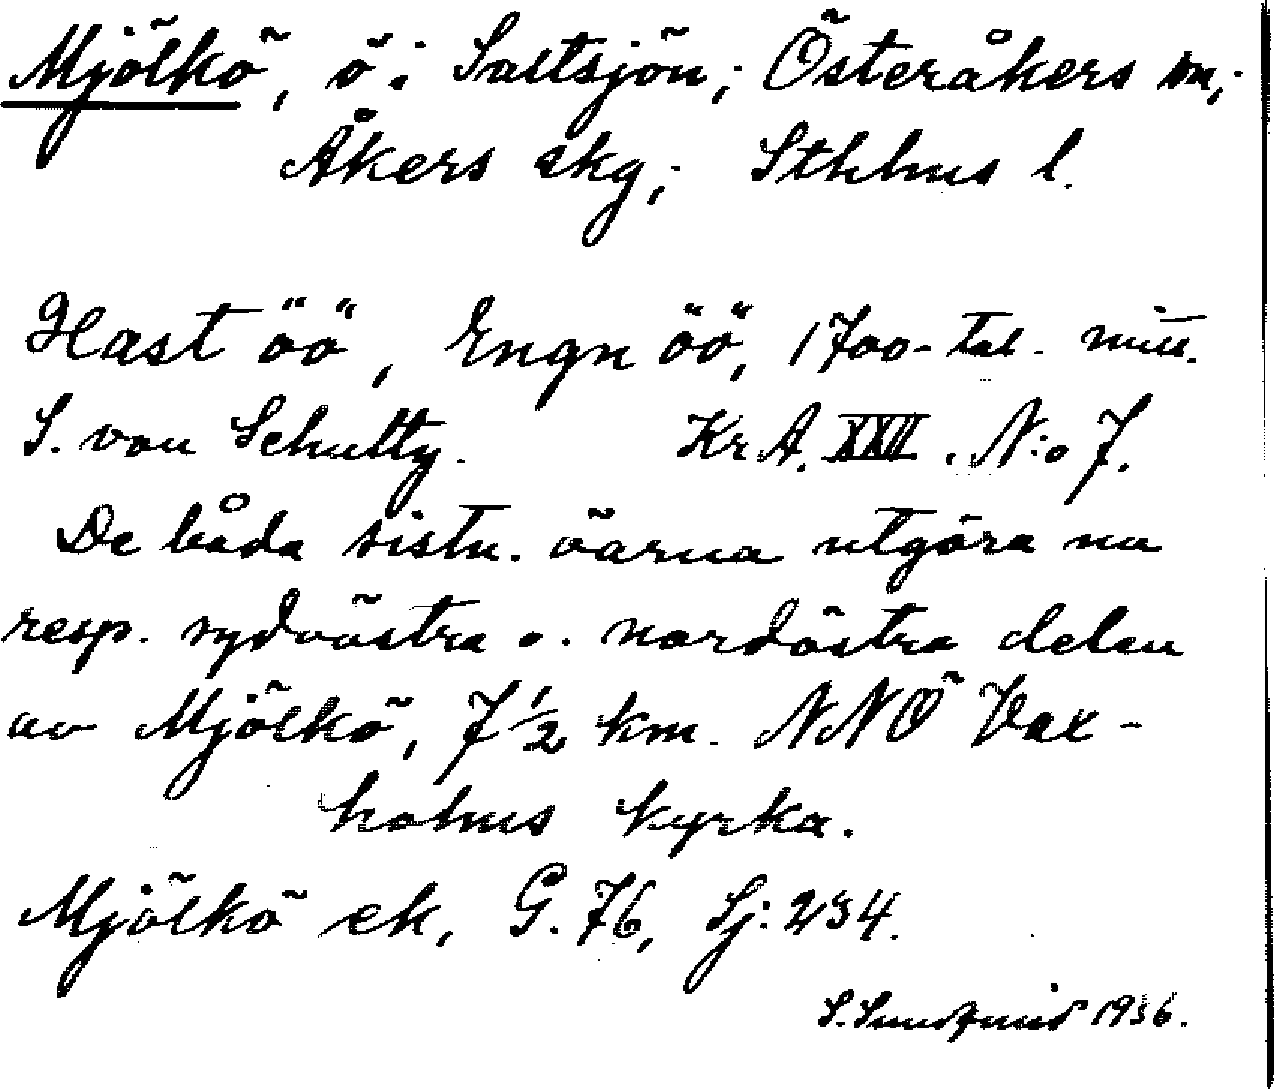 Mjölkö, ö i Saltsjön; Österåkers sn;
Åkers skg; Sthlms l.
Hast öö, Engn öö, 1700-tal. mitt.
S. von Schultz. KrA. XXII. N:o 7.
De båda sistn. öarna utgöra nu
resp. sydvästra o. nordöstra delen
av Mjölkö, 7 1/2 km. NNÖ Vax-
holms kyrka.
Mjölkö ek, G. 76, Sj: 234.
S. 1936.